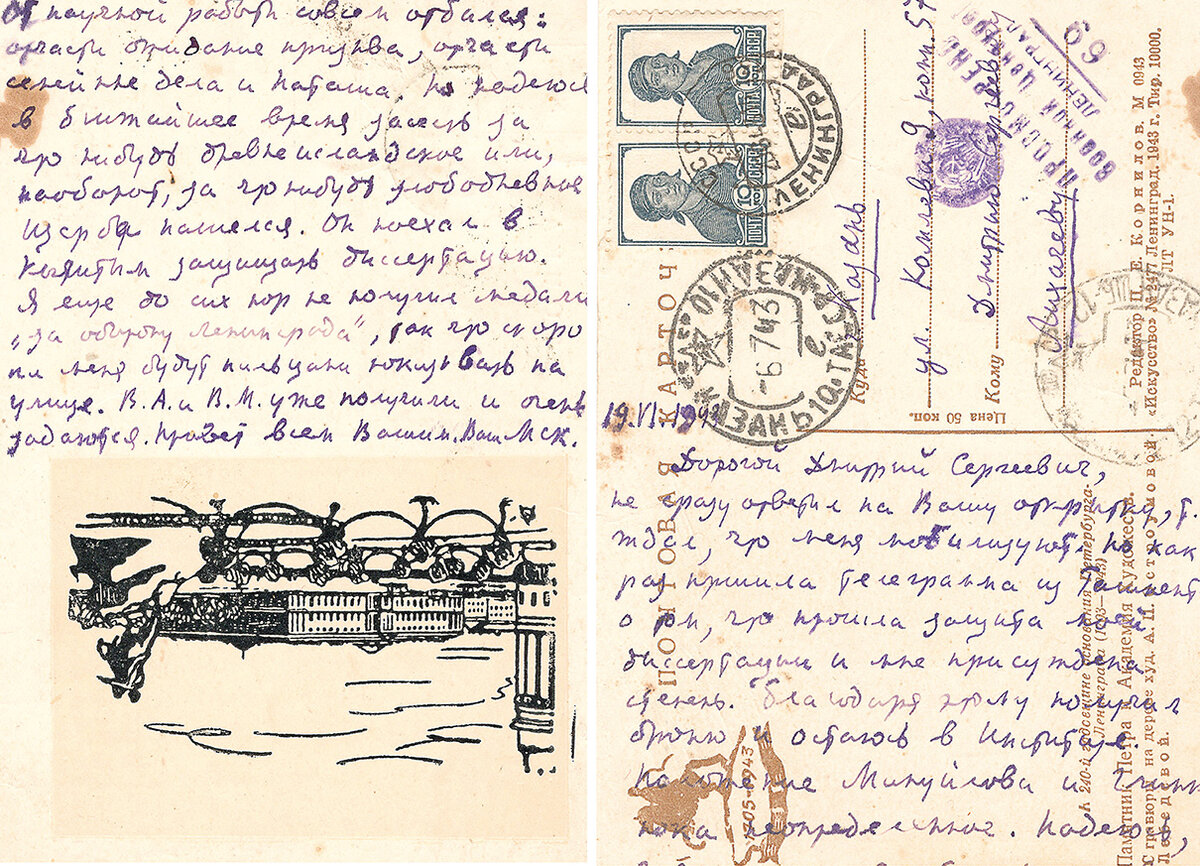 От научной работы совсем отбился:
отчасти ожидание призыва, отчасти
семейные дела и Наташа. Но надеюсь
в ближайшее время засесть за
что нибудь древнеисландское или,
наоборот, за что нибудь злободневное
Щерба нашелся. Он поехал в
защищать диссертацию.
Я еще до сих пор не получил медали
„за оборону Ленинграда", так что скоро
на меня будут пальцами показывать на
улице. В.А. и В.М. уже получили и очень
задаются. Привет всем Вашим. Ваш МСк.
ПОЧТА СССР 10
ПОЧТА СССР 10
ЛЕНИНГРАД
КАЗАНЬ 10
-6 7 43
е
ПОЧТОВАЯ КАРТОЧ
Куда
Казань
ул. Комлева 9, комн. 57
Кому
Дмитрию Сергеевичу
Лихачеву
ПРОСМОТРЕНО
ВОЕННОЙ ЦЕНЗУРОЙ
ЛЕНИНГРАД
69
Цена 50 коп.
Редактор П. Е. Корнилов. М 0943
«Искусство» № 2477 Ленинград. 1943 г. Тир. 10000.
ЛТ УН-1.
19.VI.1943
Дорогой Дмитрий Сергеевич,
не сразу ответил на Вашу открытку, т.
ждал, что меня мобилизуют, но как
раз пришла телеграмма из Ташкент
о том, что прошла защита моей
диссертации и мне присуждена
степень. Благодаря этому получил
броню и остаюсь в Институте.
Положение Мануйлова и
пока неопределенное. Надеюсь,
К 240-й годовщине основания Петербурга-
Ленинграда (1703—1943)
Памятник Петра и Академия художеств.
С гравюры на дереве худ. А. П. Остроумовой-
Лебедевой.
1703-1943